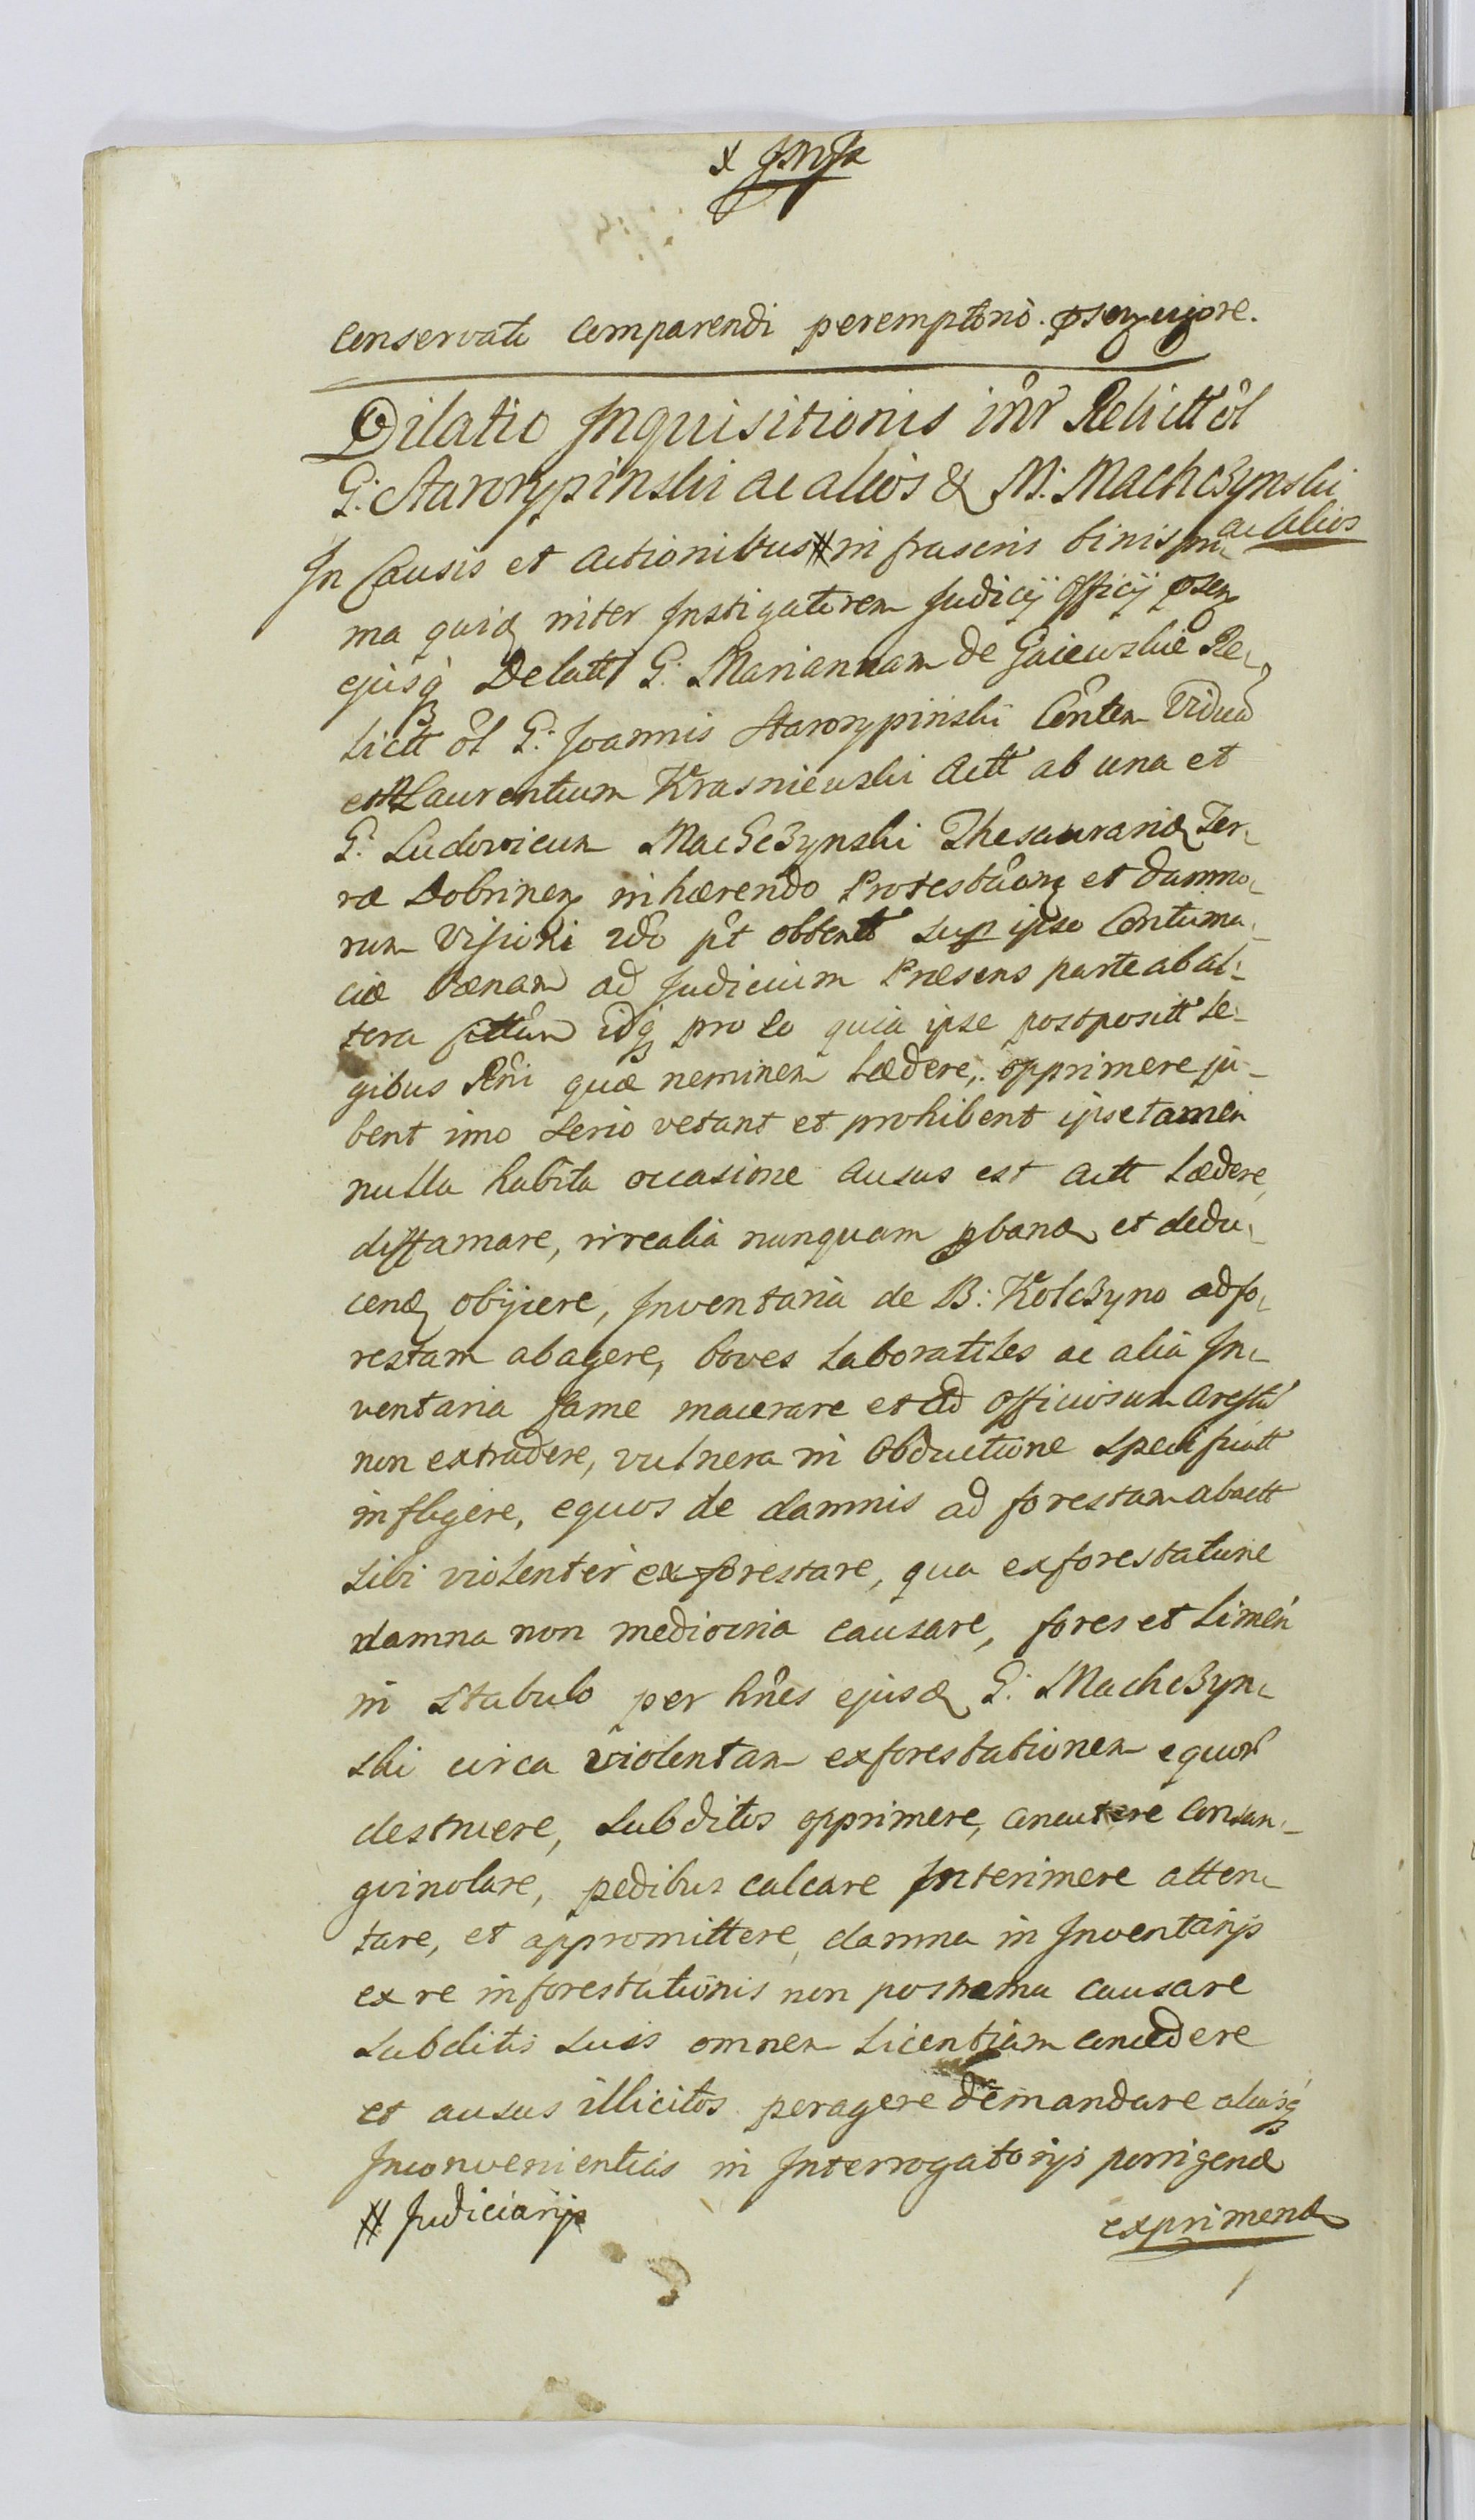 conservato comparendi peremptorio. psen vigore.
Dilatio Inquisitionis inr Relictt ol
G: Starorypinski ac alios & M: Machczynski
ac alios
In Causis et actionibus # infrascris binis pri-
ma quid inter Instigatorem Judicij Officij psen
ejusq Delatt G: Mariannam de Gaiewskie Re-
lictt ol G: Joannis Starorypinski Conten Viduā
et Laurentium Krasniewski Actt ab una et
G: Ludovicum Machczynski Thesaurarid Ter-
ræ Dobrinen inhærendo Protestaōni et damno-
rum Visioni rdo pt obtentt sup ipso Contuma-
ciæ Pœnam ad Judicium Præsens parte ab al-
tera Cittum idq pro eo quia ipse postpositt Le-
gibus Rni quæ neminem lædere, opprimere ju-
bent imo serio vetant et prohibent ipse tamen
nulla habita occasione ausus est actt lædere,
diffamare, irrealia nunquam pband et dedu-
cend objicere, Inventaria de B: Kolczyno ad fo-
restam abagere, boves laboratiles ac alia In-
ventaria fame macerare et ad officiosum arestū
non extradere, vulnera in Obductione specificatt
infligere, equos de damnis ad forestam abactt
sibi violenter exforestare, qua exforestatione
damna non mediocria causare, fores et limen
in stabulo per hnes ejusd G: Machczyn-
ski circa violentam exforestationem equor
destruere, subditos opprimere, concutere consan-
guinolare, pedibus calcare Interimere atten-
tare, et appromittere, damna in Inventarijs
ex re inforestationis non postrema causare
subditis suis omnem licentiam concedere
et ausus illicitos peragere demandare aliasq
Inconvenientias in Interrogatorijs porrigend
# Judiciarijs
exprimend